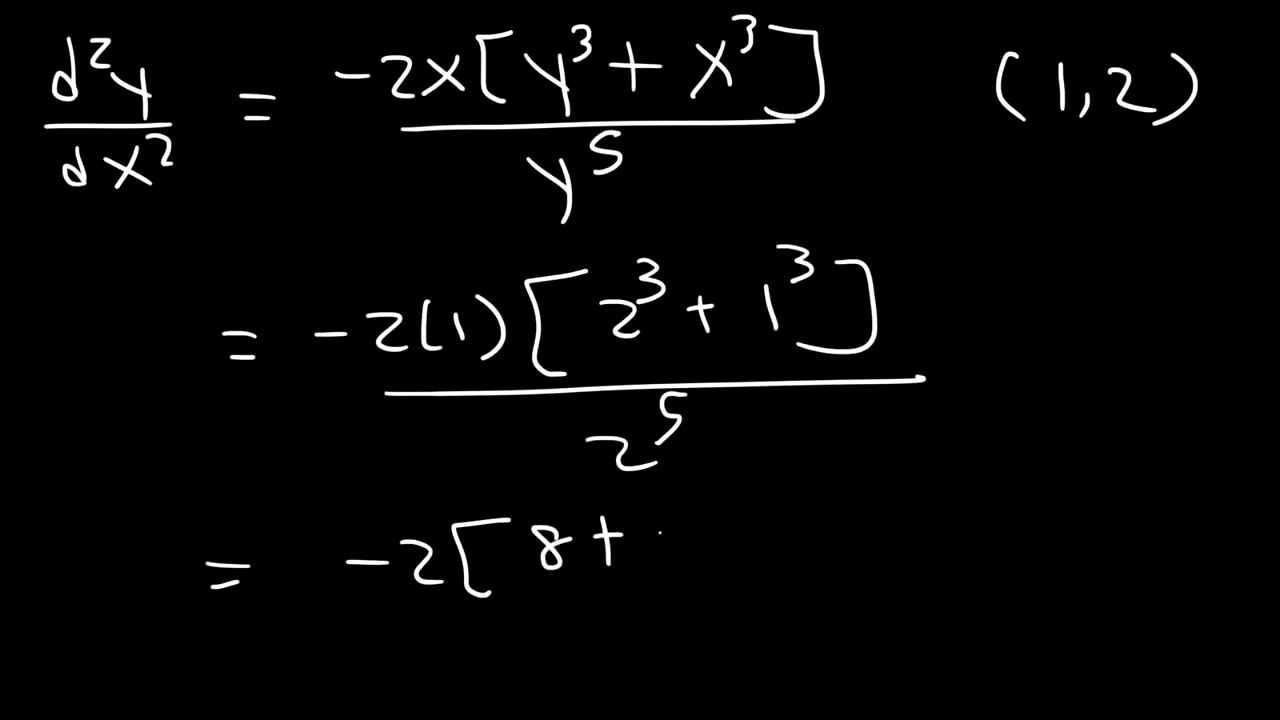 d²y/dx² = -2x[y³ + x³]/y⁵ (1,2)
= -2(1)[2³ + 1³]/2⁵
= -2[8+